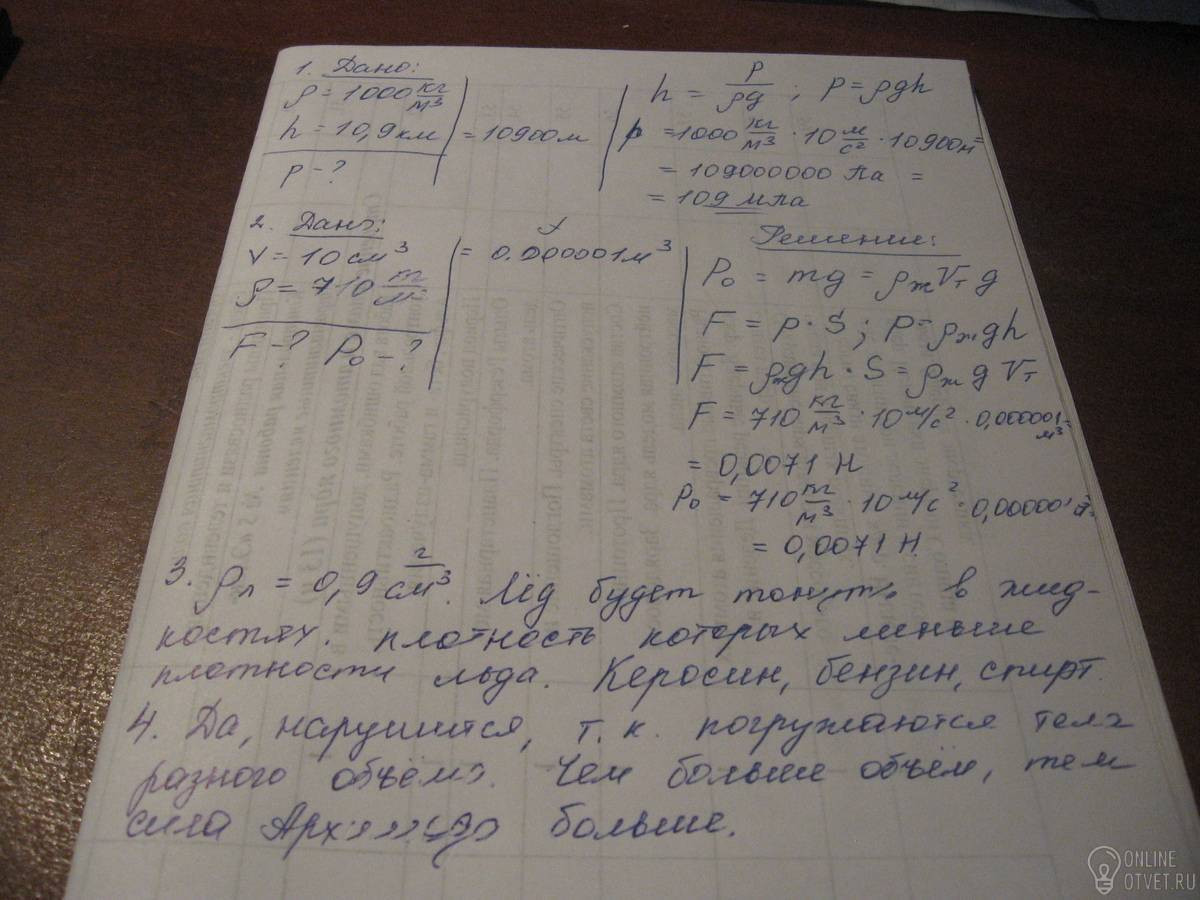 1. Дано:
ρ = 1000 кг/м³
h = 10,9 км = 10900 м
p - ?
h = p/ρg ; p = ρgh
p = 1000 кг/м³ · 10 м/с² · 10900 м =
= 109000000 Па =
= 109 мПа
2. Дано:
V = 10 см³ = 0.000001 м³
ρ = 710 кг/м³
F - ? P₀ - ?
Решение:
P₀ = mg = ρж Vт g
F = p · S ; P = ρж gh
F = ρж gh · S = ρж g Vт
F = 710 кг/м³ · 10 м/с² · 0,000001 м³ =
= 0,0071 Н
P₀ = 710 кг/м³ · 10 м/с² · 0,000001 м³ =
= 0,0071 Н
3. ρл = 0,9 г/см³. Лёд будет тонуть в жид-
костях. плотность которых меньше
плотности льда. Керосин, бензин, спирт.
4. Да, нарушится, т.к. погружаются тела
разного объёма. Чем больше объём, тем
сила Архимеда больше.
ONLINE
OTVET.RU